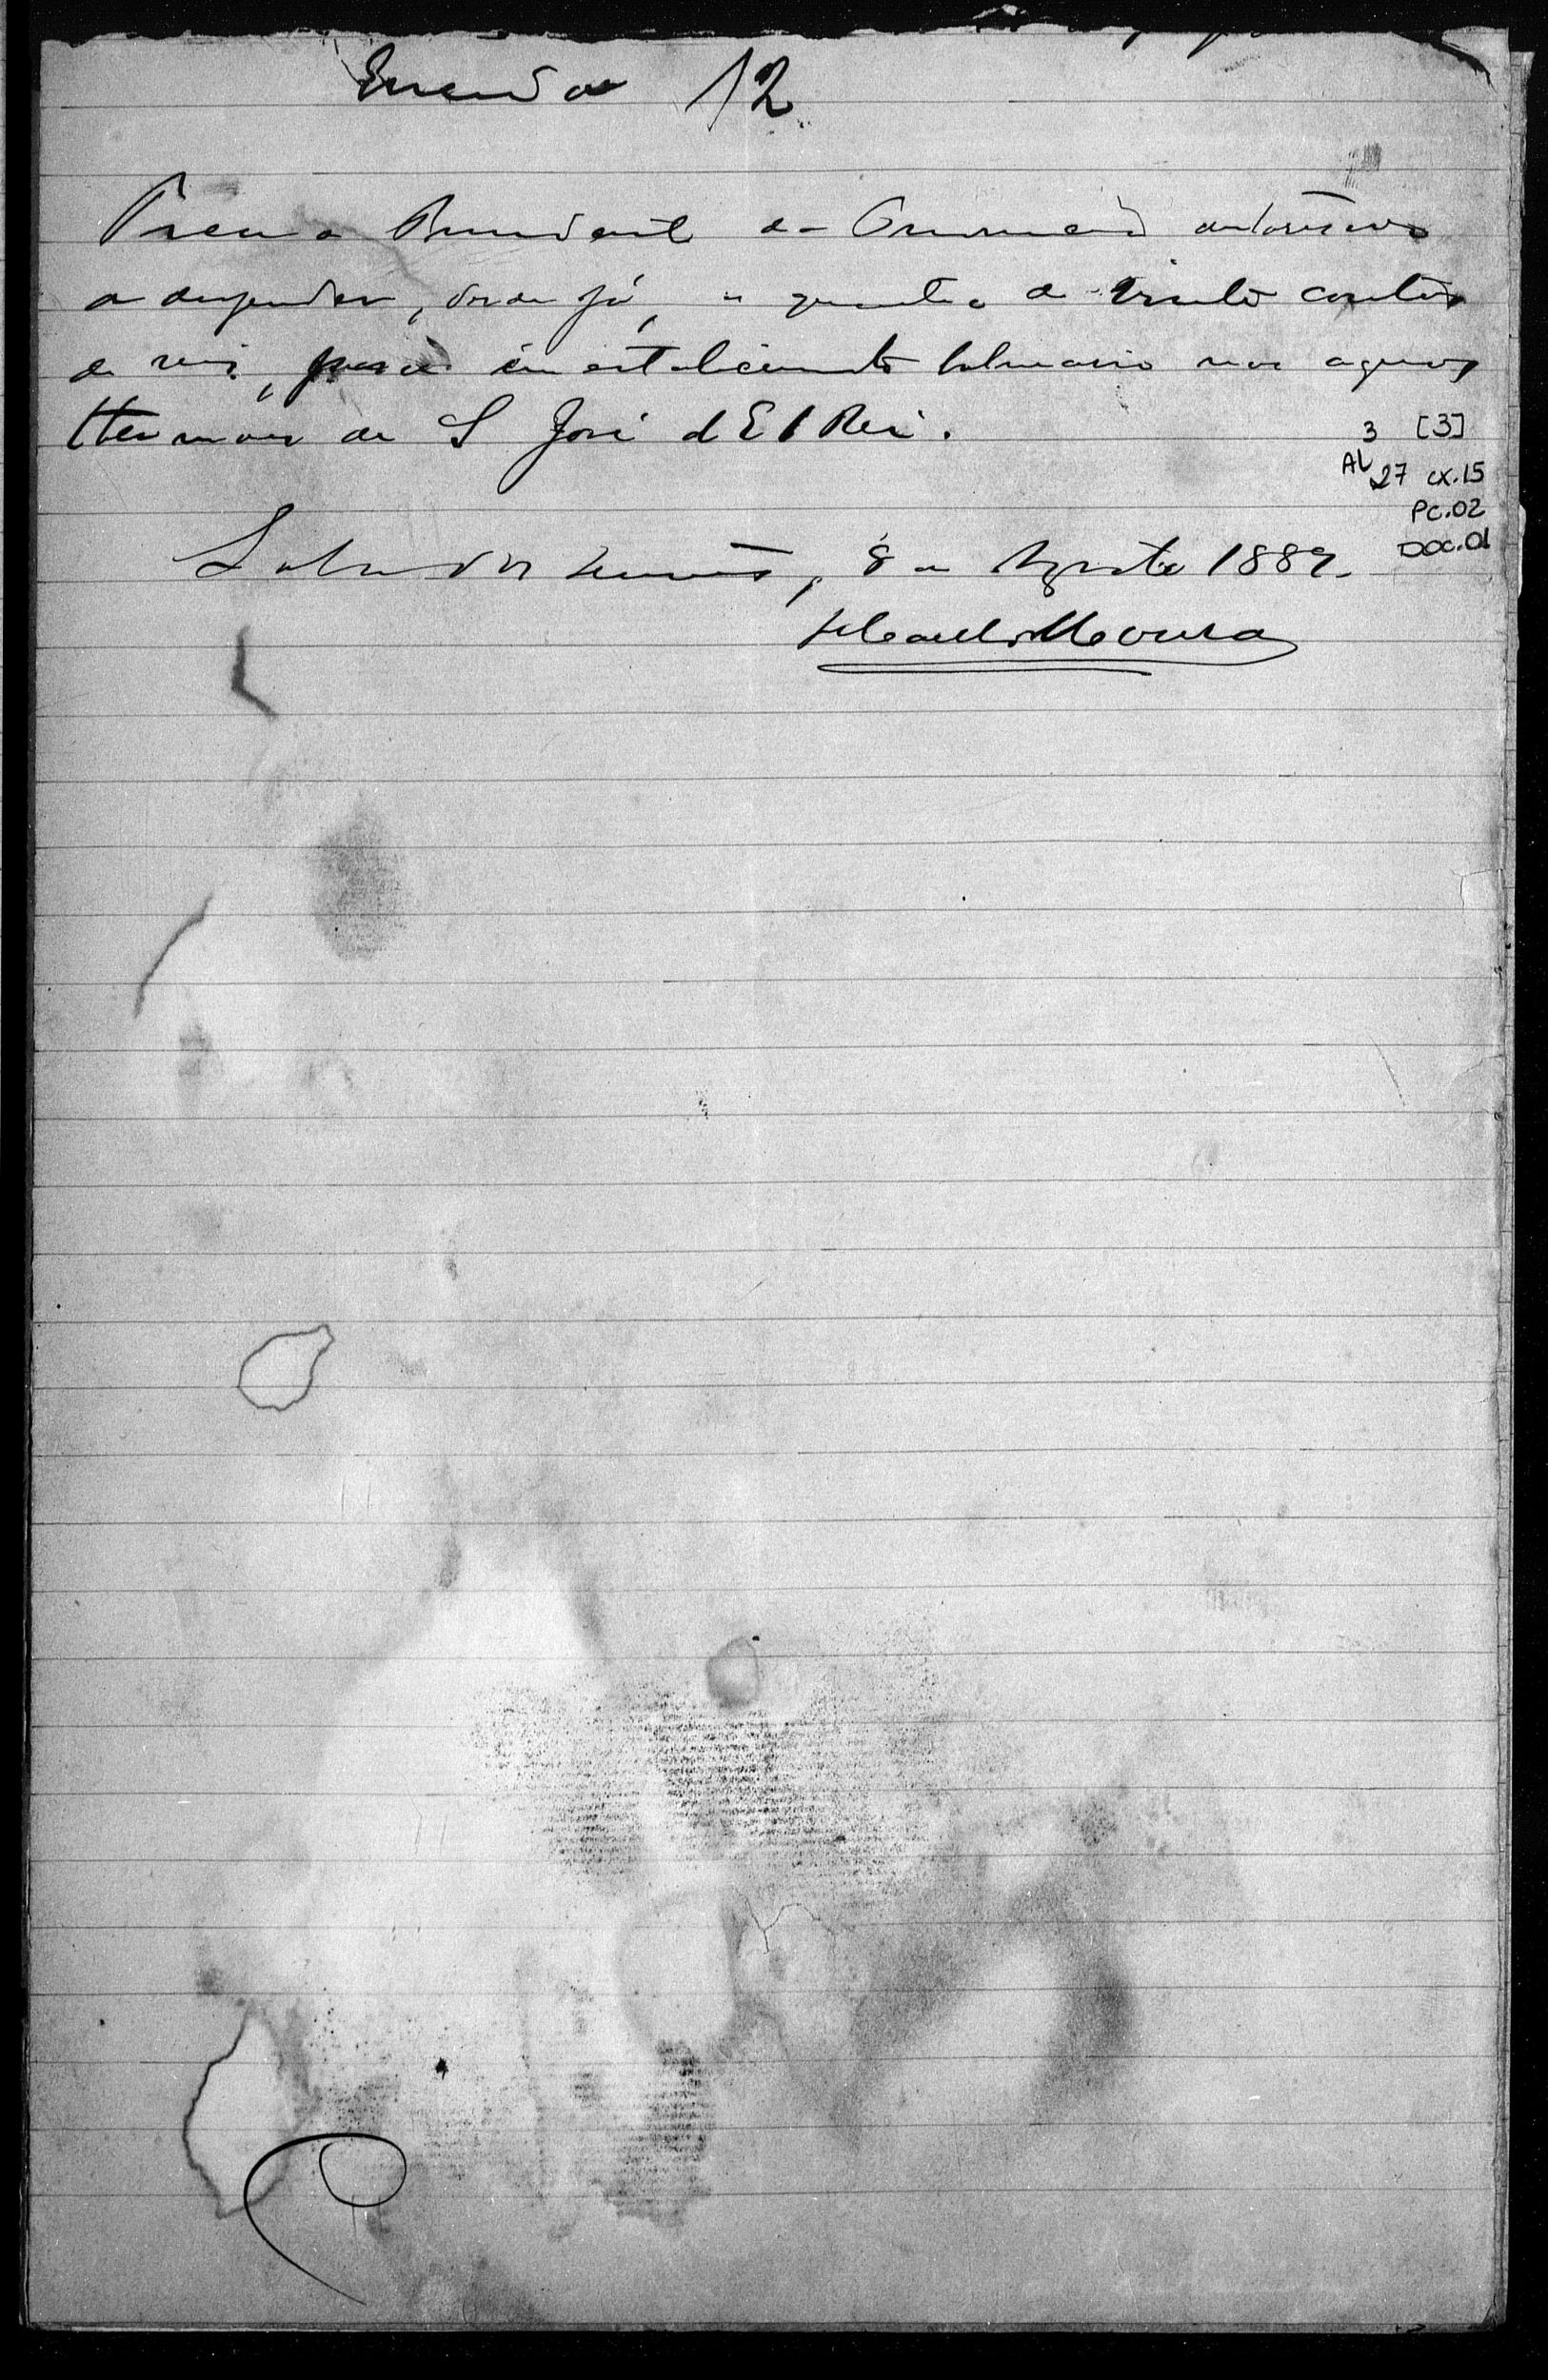 Emenda 12
Fica o Presidente da Provincia autorisado
a despender, desde já, a quantia de vinte contos
de reis, para um estabelecimento balneario nas aguas
thermaes de S José d'El Rei.
Sala das Sessões, 8 de Agosto 1889.
Moura
3 [3]
AL 27 cx.15
PC.02
DOC.01